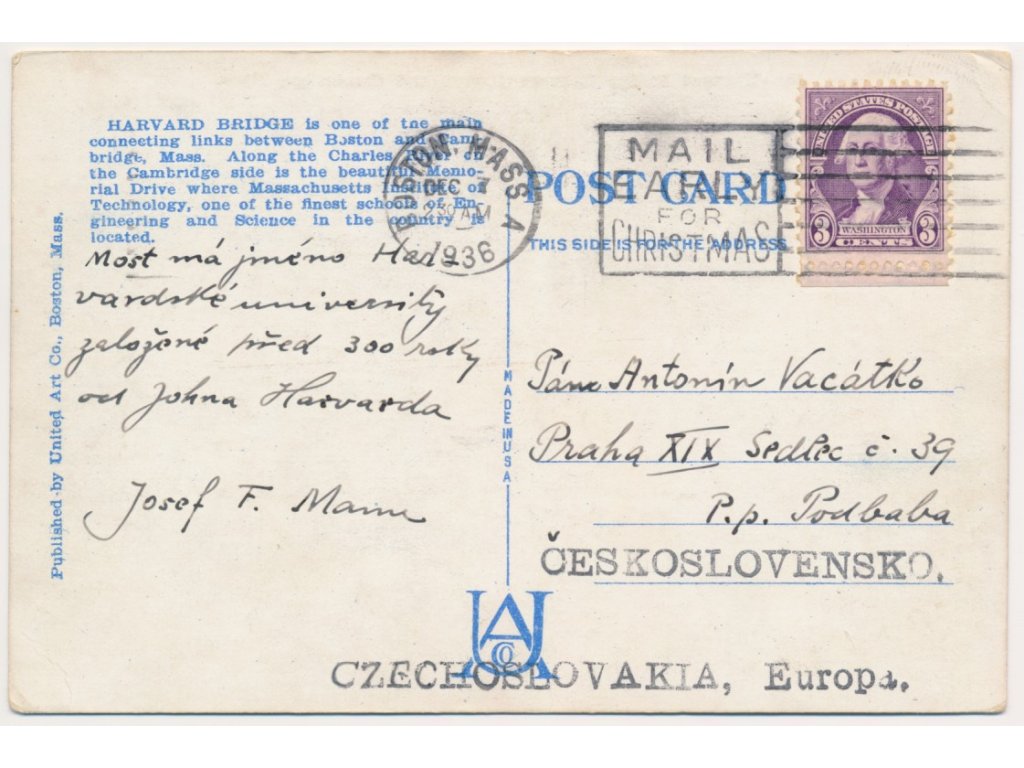 HARVARD BRIDGE is one of the main
connecting links between Boston and Cam-
bridge, Mass. Along the Charles River on
the Cambridge side is the beautiful Memo-
rial Drive where Massachusetts Institute of
Technology, one of the finest schools of En-
gineering and Science in the country is
located.
Most má jméno Har-
vardské university
založené před 300 roky
od Johna Harvarda
Josef F.
Published by United Art Co., Boston, Mass.
MADE IN USA
BOSTON, MASS. A
DEC 7
30 AM
1936
MAIL
EARLY
FOR
CHRISTMAS
UNITED STATES POSTAGE
WASHINGTON
3 CENTS 3
POST CARD
THIS SIDE IS FOR THE ADDRESS
Pánu Antonín Vacátko
Praha XIX Sedlec č. 39
P.p. Podbaba
ČESKOSLOVENSKO.
UA
CO
CZECHOSLOVAKIA, Europa.